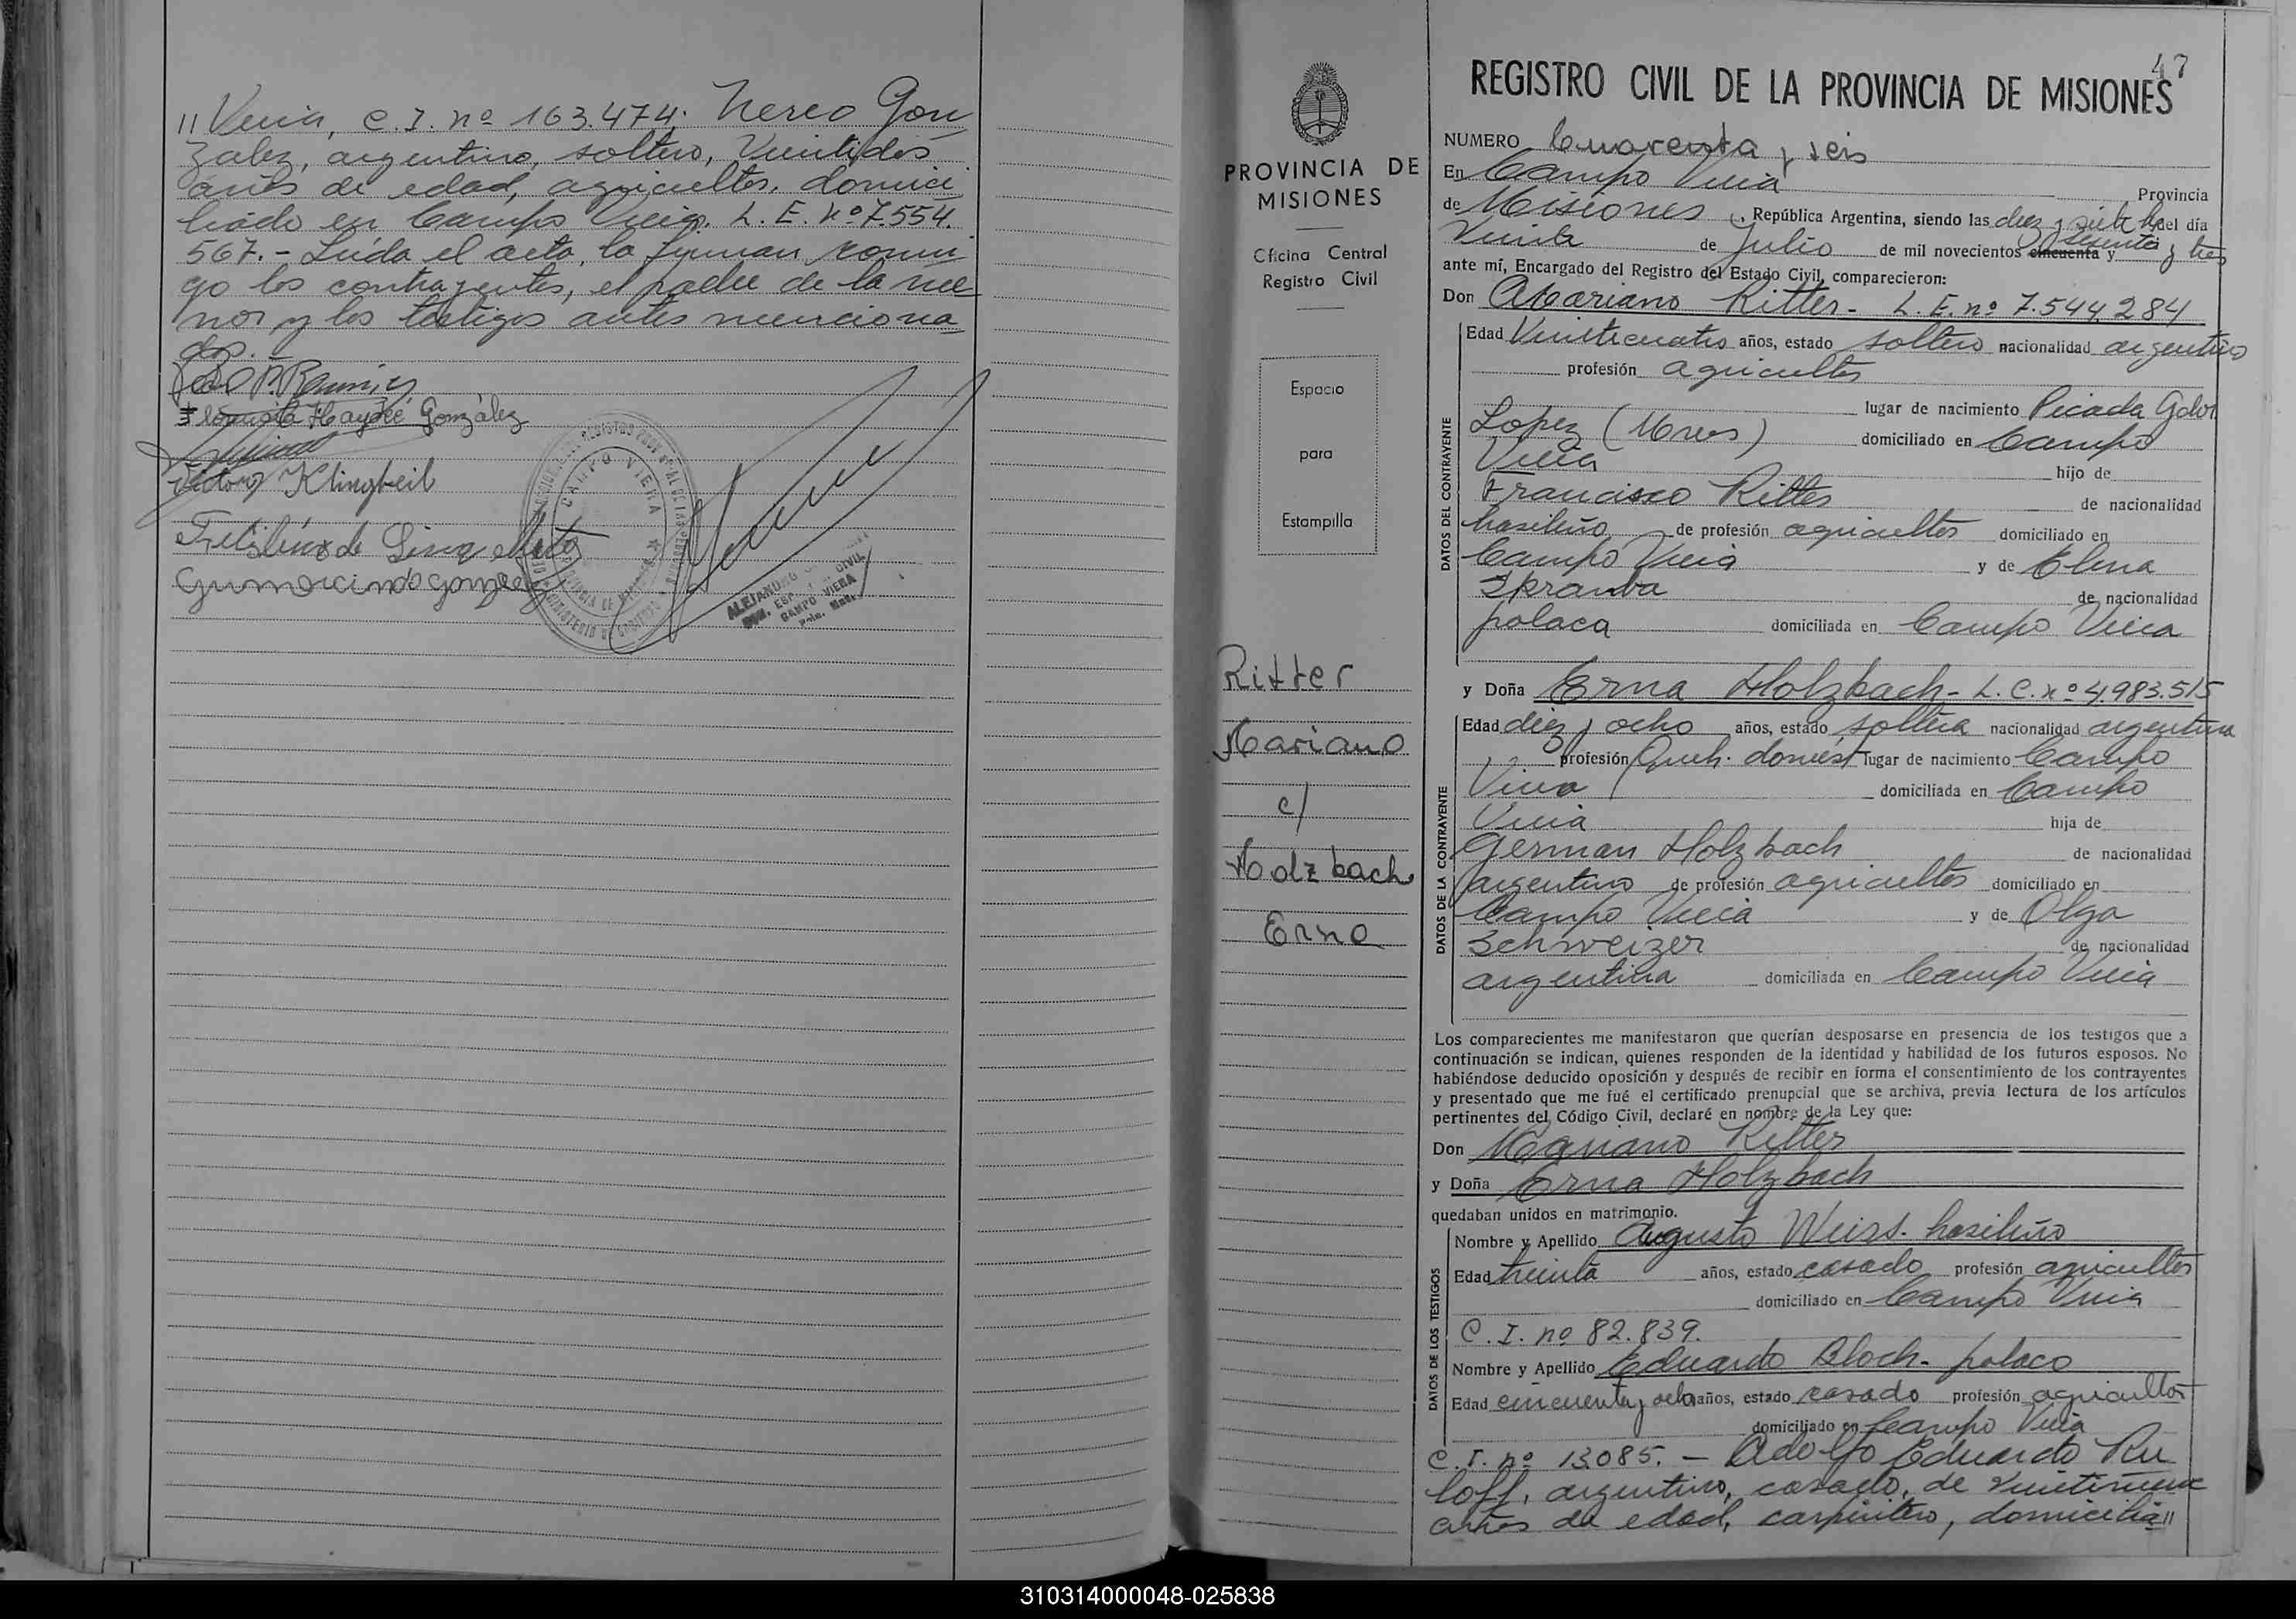 // Viera, C.I. nº 163.474. Nereo Gon
zalez, argentino, soltero, Veintidós
años de edad, agricultor, domici
liado en Campo Viera. L.E. nº 7.554.
567.- Leída el acta, la firman conmi
go los contrayentes, el padre de la me
nor y los testigos antes menciona
dos.-
Haydeé González
Victor Klingbeil
de Lima
Gumercindo Gonzalez
CAMPO VIERA
ALEJANDRO
CAMPO VIERA
PROVINCIA DE
MISIONES
Oficina Central
Registro Civil
Espacio
para
Estampilla
Ritter
Mariano
c/
Holzbach
Erna
47
REGISTRO CIVIL DE LA PROVINCIA DE MISIONES
NUMERO Cuarenta y seis
En Campo Viera Provincia
de Misiones, República Argentina, siendo las diez y siete hs del día
Veinte de Julio de mil novecientos cincuenta y sesenta y tres
ante mí, Encargado del Registro del Estado Civil, comparecieron:
Don Mariano Ritter - L.E. nº 7.544.284
DATOS DEL CONTRAYENTE
Edad Veinticuatro años, estado soltero nacionalidad argentino
profesión agricultor
lugar de nacimiento Picada Gdor.
Lopez (Mnes) domiciliado en Campo
Viera hijo de
Francisco Ritter de nacionalidad
brasileño, de profesión agricultor domiciliado en
Campo Viera y de Elena
de nacionalidad
polaca domiciliada en Campo Viera
y Doña Erna Holzbach - L.C. nº 4.983.515
DATOS DE LA CONTRAYENTE
Edad diez y ocho años, estado soltera nacionalidad argentina
profesión Queh. domést lugar de nacimiento Campo
Viera domiciliada en Campo
Viera hija de
German Holzbach de nacionalidad
argentino de profesión agricultor domiciliado en
Campo Viera y de Olga
Schweizer de nacionalidad
argentina domiciliada en Campo Viera
Los comparecientes me manifestaron que querían desposarse en presencia de los testigos que a
continuación se indican, quienes responden de la identidad y habilidad de los futuros esposos. No
habiéndose deducido oposición y después de recibir en forma el consentimiento de los contrayentes
y presentado que me fué el certificado prenupcial que se archiva, previa lectura de los artículos
pertinentes del Código Civil, declaré en nombre de la Ley que:
Don Mariano Ritter
y Doña Erna Holzbach
quedaban unidos en matrimonio.
DATOS DE LOS TESTIGOS
Nombre y Apellido Augusto Weiss. brasileño
Edad treinta años, estado casado profesión agricultor
domiciliado en Campo Viera
C.I. nº 82.839.
Nombre y Apellido Eduardo Bloch - polaco
Edad cincuenta y ocho años, estado casado profesión agricultor
domiciliado en Campo Viera
C.I. nº 13.085. - Adolfo Eduardo Ru
loff, argentino, casado, de veintinueve
años de edad, carpintero, domicilia//
310314000048-025838